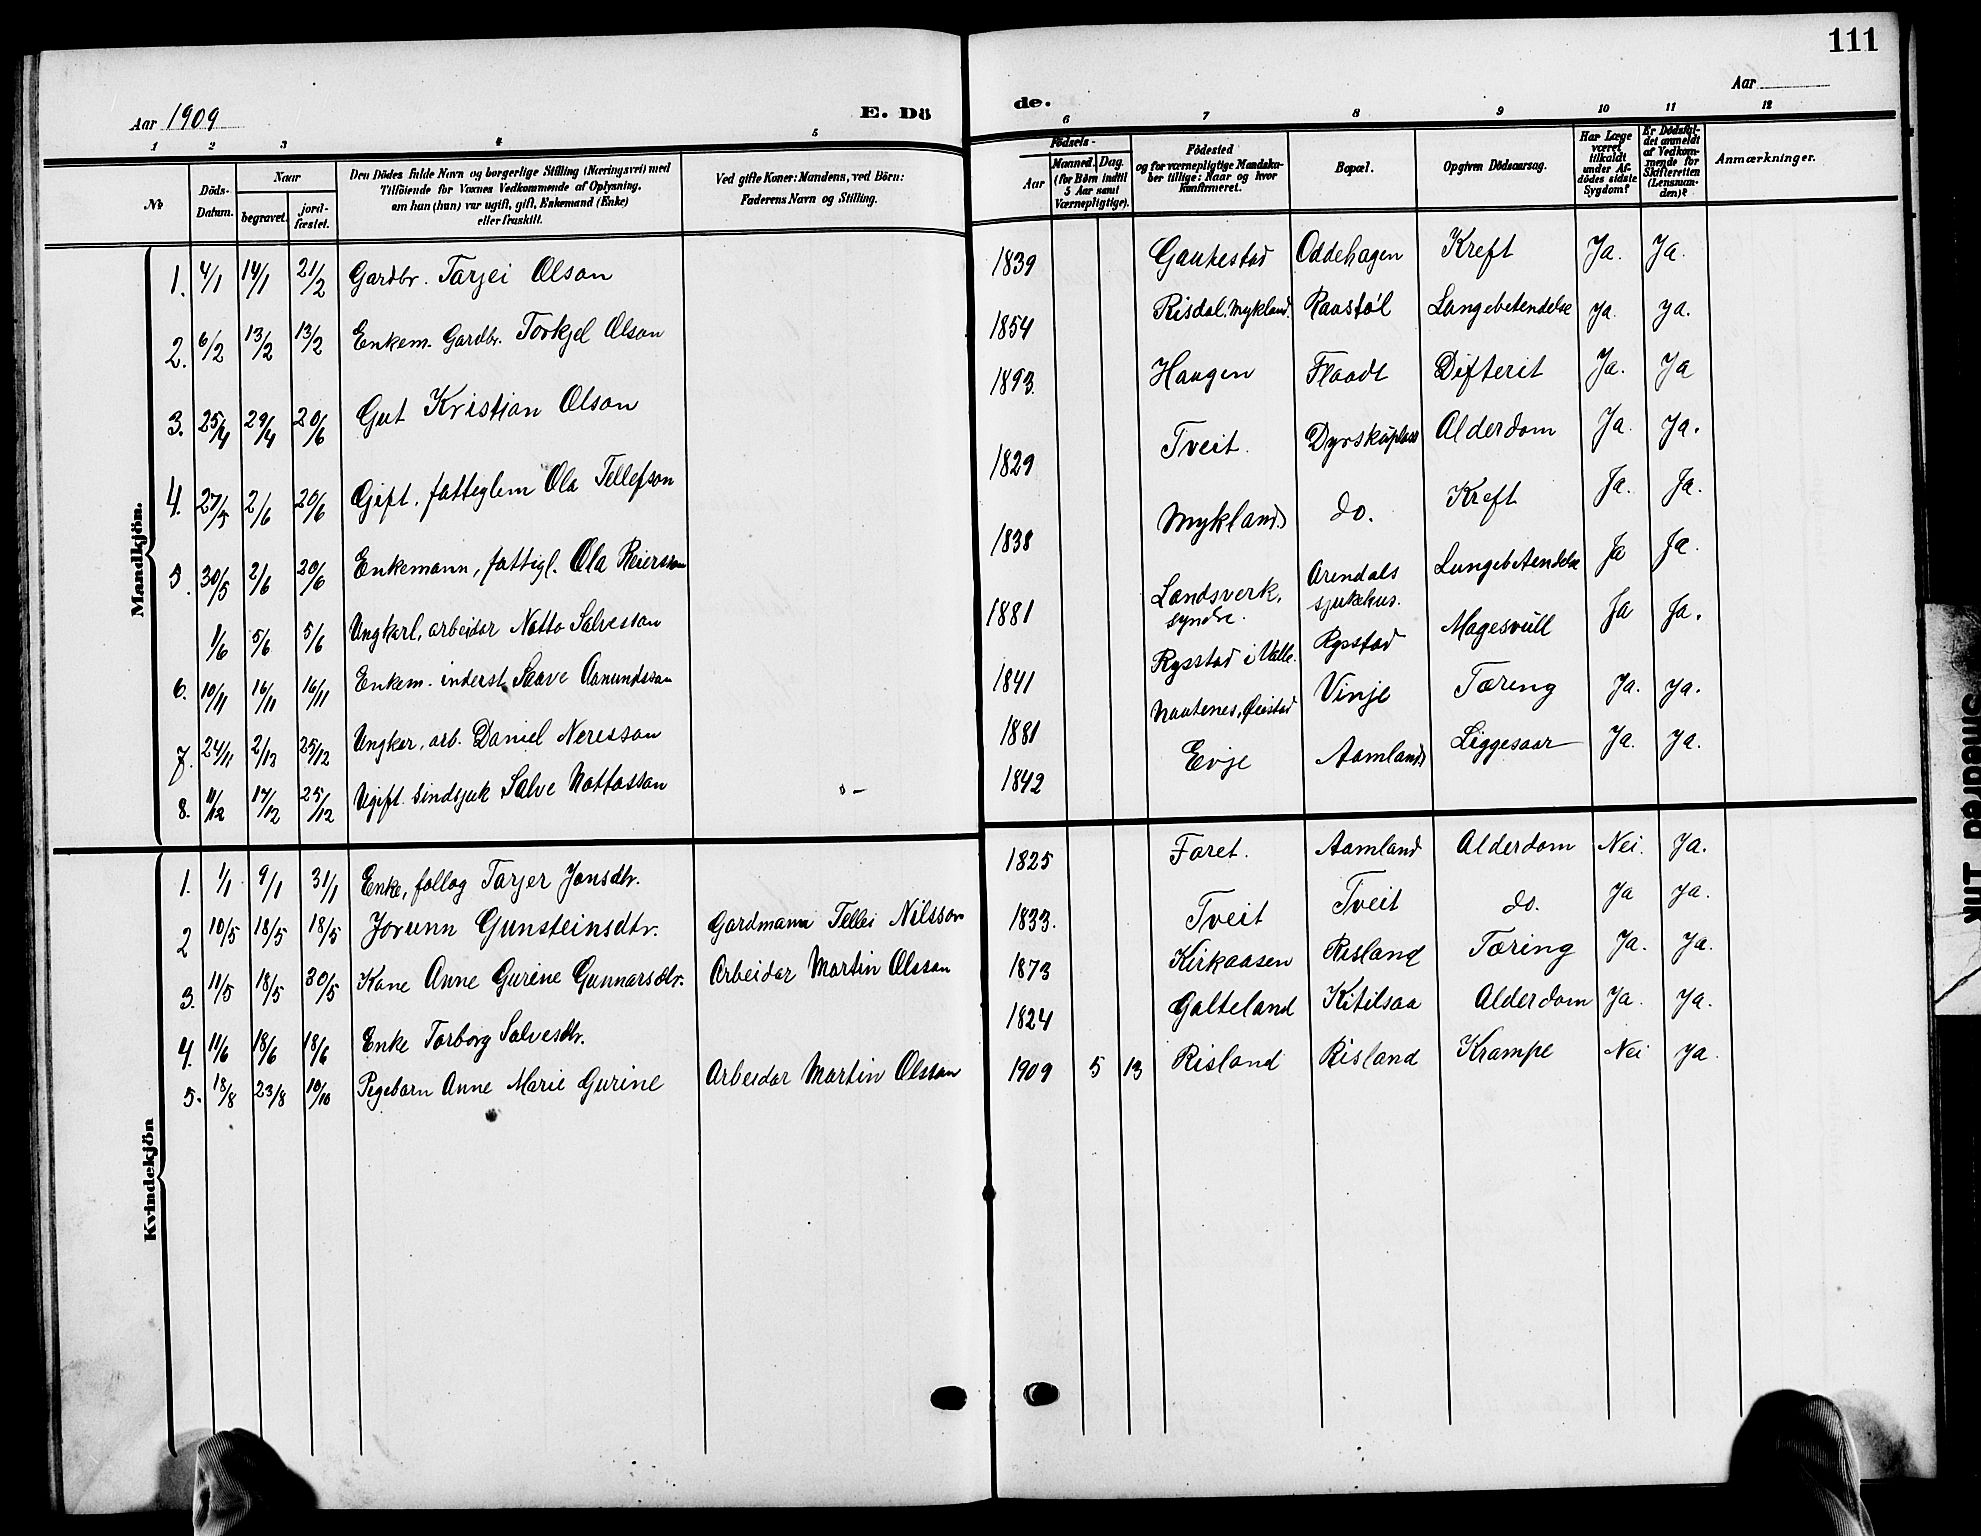 111
Aar 1909
E. Dö
de.
Aar
1 2 3 4 5 6 7 8 9 10 11 12
No
Döds-Datum.
Naar
begravet.
jord-fæstet.
Den Dödes fulde Navn og borgerlige Stilling (Næringsvei) med
Tilföiende for Voxnes Vedkommende af Oplysning,
om han (hun) var ugift, gift, Enkemand (Enke)
eller fraskilt.
Ved gifte Koner: Mandens, ved Börn:
Faderens Navn og Stilling.
Födsels-
Aar
Maaned. Dag.
(for Börn indtil
5 Aar samt
Værnepligtige).
Födested
og for værnepligtige Mandska-
ber tillige: Naar og hvor
konfirmeret.
Bopæl.
Opgiven Dödsaarsag.
Har Læge
været
tilkaldt
under Af-
dödes sidste
Sygdom?
Er Dödsfal-
det anmeldt
af Vedkom-
mende for
Skifteretten
(Lensman-
den)?
Anmærkninger.
Mandkjön.
1. 4/1 14/1 21/2 Gardbr. Tarjei Olson 1839 Gautestad Oddehagen Kreft Ja. Ja.
2. 6/2 13/2 13/2 Enkem. Gardbr. Torkjel Olson 1854 Risdal. Mykland. Raastøl Lungebetendelse Ja. Ja.
3. 25/4 29/4 20/6 Gut Kristian Olson 1893. Haugen Flaadt Difterit Ja. Ja
4. 27/5 2/6 20/6 Gift. fatteglem Ola Tellefson 1829 Tveit. Dyrskuplass Alderdom Ja. Ja.
5. 30/5 2/6 20/6 Enkemann, fattigl. Ola Reierson 1838 Mykland do. Kreft Ja. Ja.
1/6 5/6 5/6 Ungkarl, arbeidar Notto Salveson 1881 Landsverk, syndre. Arendals sjukehus. Lungebetendelse Ja Ja.
6. 10/11 16/11 16/11 Enkem. inderst Saave Aamundsson 1841 Rysstad i Valle. Rysstad Magesvull Ja Ja.
7. 24/11 2/12 25/12 Ungkar, arb. Daniel Neresson 1881 Nautenes, Øiestad Vinje Tæring Ja. Ja.
8. 11/12 17/12 25/12 Ugift. sindsjuk Salve Nottosson 1842 Evje Aamland Liggesaar Ja. Ja.
Kvindekjön
1. 1/1 9/1 31/1 Enke, follog Tarjer Jonsdtr. 1825 Foret. Aamland Alderdom Nei. Ja.
2 10/5 18/5 18/5 Jorunn Gunsteinsdtr. Gardmann Tellei Nilsson 1833. Tveit Tveit do. Ja Ja.
3. 11/5 18/5 30/5 Kone Anne Gurine Gunnarsdtr. Arbeidar Martin Olsson 1873 Kirkaasen Risland Tæring Ja. Ja.
4. 11/6 18/6 18/6 Enke Torborg Salvesdtr. 1824 Galteland Kitilsaa Alderdom Ja. Ja.
5. 18/8 23/8 10/10 Pigebarn Anne Marie Gurine Arbeidar Martin Olsson 1909 5 13 Risland Risland Krampe Nei Ja.